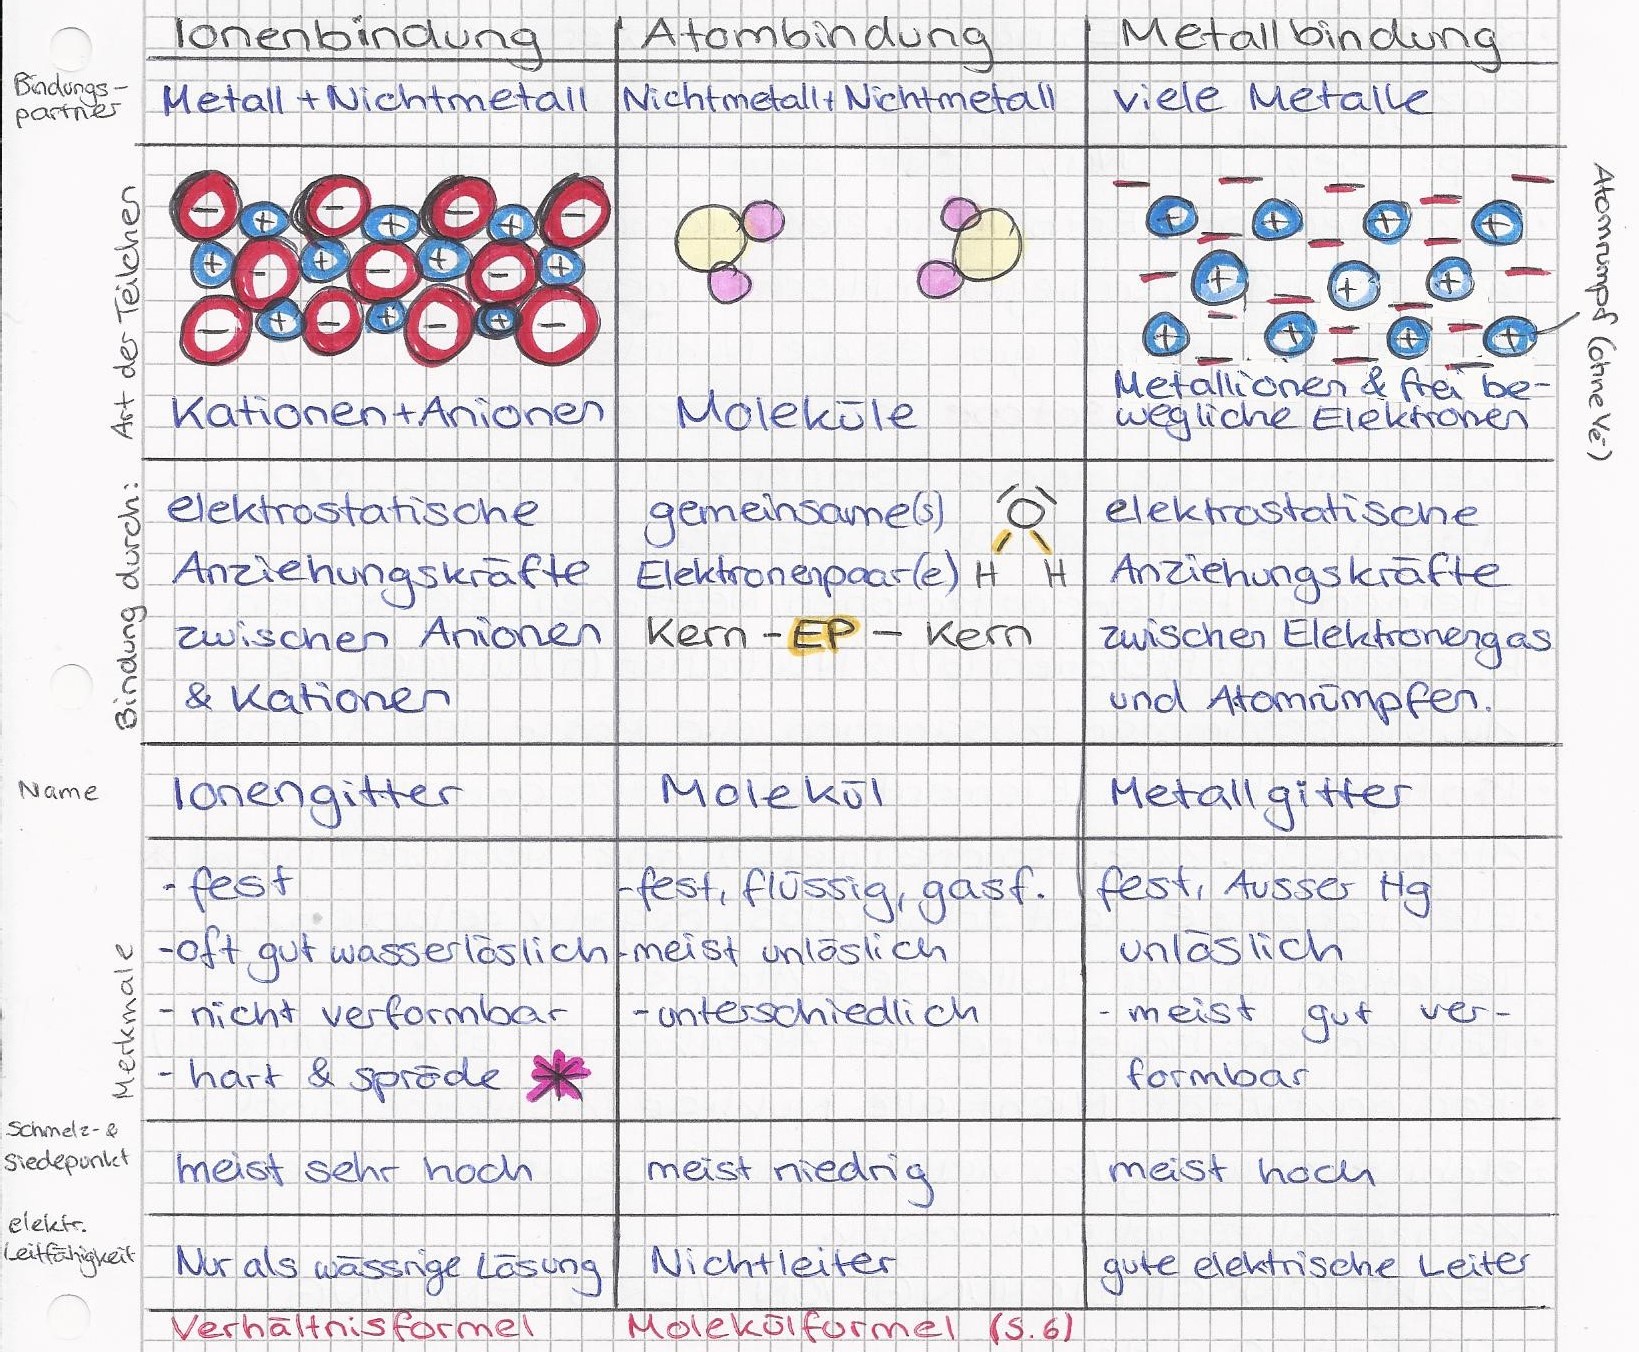 Ionenbindung Atombindung Metallbindung
Bindungs-
partner
Metall + Nichtmetall Nichtmetall + Nichtmetall viele Metalle
Art der Teilchen
− + − + − + −
+ − + − + − +
− + − + − + −
+ + + +
+ + +
+ + + +
Atomrumpf (ohne Ve⁻)
Kationen + Anionen Moleküle Metallionen & frei be-
wegliche Elektronen
Bindung durch:
elektrostatische gemeinsame(s) O elektrostatische
Anziehungskräfte Elektronenpaar(e) H H Anziehungskräfte
zwischen Anionen Kern - EP - Kern zwischen Elektronengas
& Kationen und Atomrümpfen.
Name Ionengitter Molekül Metallgitter
Merkmale
- fest - fest, flüssig, gasf. fest, Ausser Hg
- oft gut wasserlöslich - meist unlöslich unlöslich
- nicht verformbar - unterschiedlich - meist gut ver-
- hart & spröde * formbar
Schmelz- &
Siedepunkt meist sehr hoch meist niedrig meist hoch
elektr.
Leitfähigkeit Nur als wässrige Lösung Nichtleiter gute elektrische Leiter
Verhältnisformel Molekülformel (S. 6)